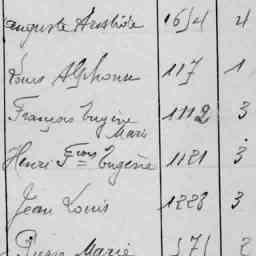 Auguste Aristide 1654 4
Louis Alphonse 117 1
François Eugène 1112 3
Marie
Henri Fçois Eugène 1121 3
Jean Louis 1228 3
Pierre Marie 571 2